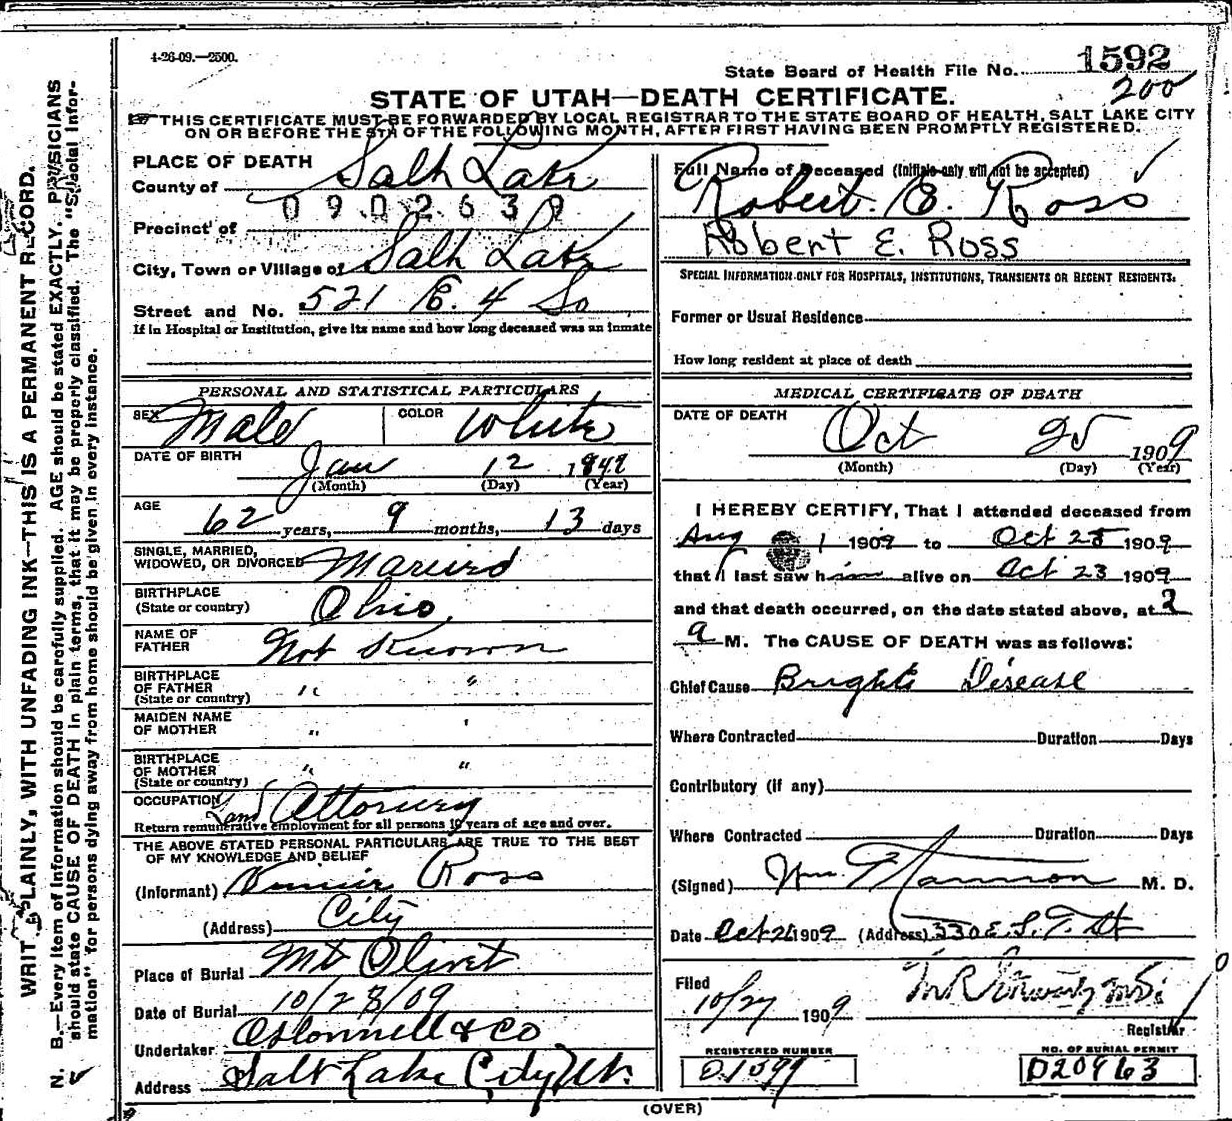 4-26-09.—2500.
State Board of Health File No. 1592
200
STATE OF UTAH—DEATH CERTIFICATE.
THIS CERTIFICATE MUST BE FORWARDED BY LOCAL REGISTRAR TO THE STATE BOARD OF HEALTH, SALT LAKE CITY
ON OR BEFORE THE 5TH OF THE FOLLOWING MONTH, AFTER FIRST HAVING BEEN PROMPTLY REGISTERED.
WRITE PLAINLY, WITH UNFADING INK—THIS IS A PERMANENT RECORD.
N. B.—Every item of information should be carefully supplied. AGE should be stated EXACTLY. PHYSICIANS
should state CAUSE OF DEATH in plain terms, that it may be properly classified. The "Special Infor-
mation" for persons dying away from home should be given in every instance.
PLACE OF DEATH
County of Salt Lake
0902639
Precinct of
City, Town or Village of Salt Lake
Street and No. 521 E. 4 So
If in Hospital or Institution, give its name and how long deceased was an inmate
PERSONAL AND STATISTICAL PARTICULARS
SEX Male COLOR White
DATE OF BIRTH Jan 12
(Month) (Day) (Year)
AGE 62 years, 9 months, 13 days
SINGLE, MARRIED,
WIDOWED, OR DIVORCED Married
BIRTHPLACE
(State or country) Ohio
NAME OF
FATHER Not Known
BIRTHPLACE
OF FATHER
(State or country) " "
MAIDEN NAME
OF MOTHER " "
BIRTHPLACE
OF MOTHER
(State or country) " "
OCCUPATION Land Attorney
Return remunerative employment for all persons 10 years of age and over.
THE ABOVE STATED PERSONAL PARTICULARS ARE TRUE TO THE BEST
OF MY KNOWLEDGE AND BELIEF
(Informant) Ross
(Address) City
Place of Burial Mt Olivet
Date of Burial 10/28/09
Undertaker O'Donnell & Co
Address Salt Lake City, Ut.
Full Name of Deceased (Initials only will not be accepted)
Robert. E. Ross
Robert E. Ross
SPECIAL INFORMATION ONLY FOR HOSPITALS, INSTITUTIONS, TRANSIENTS OR RECENT RESIDENTS.
Former or Usual Residence
How long resident at place of death
MEDICAL CERTIFICATE OF DEATH
DATE OF DEATH Oct 25 1909
(Month) (Day) (Year)
I HEREBY CERTIFY, That I attended deceased from
Aug 1 1909 to Oct 25 1909
that I last saw him alive on Oct 23 1909
and that death occurred, on the date stated above, at 2
a M. The CAUSE OF DEATH was as follows:
Chief Cause Brights Disease
Where Contracted Duration Days
Contributory (if any)
Where Contracted Duration Days
(Signed) Wm M. D.
Date Oct 26 1909 (Address) 330 E
Filed
10/27 1909
Registrar
REGISTERED NUMBER
D1599
NO. OF BURIAL PERMIT
D20963
(OVER)